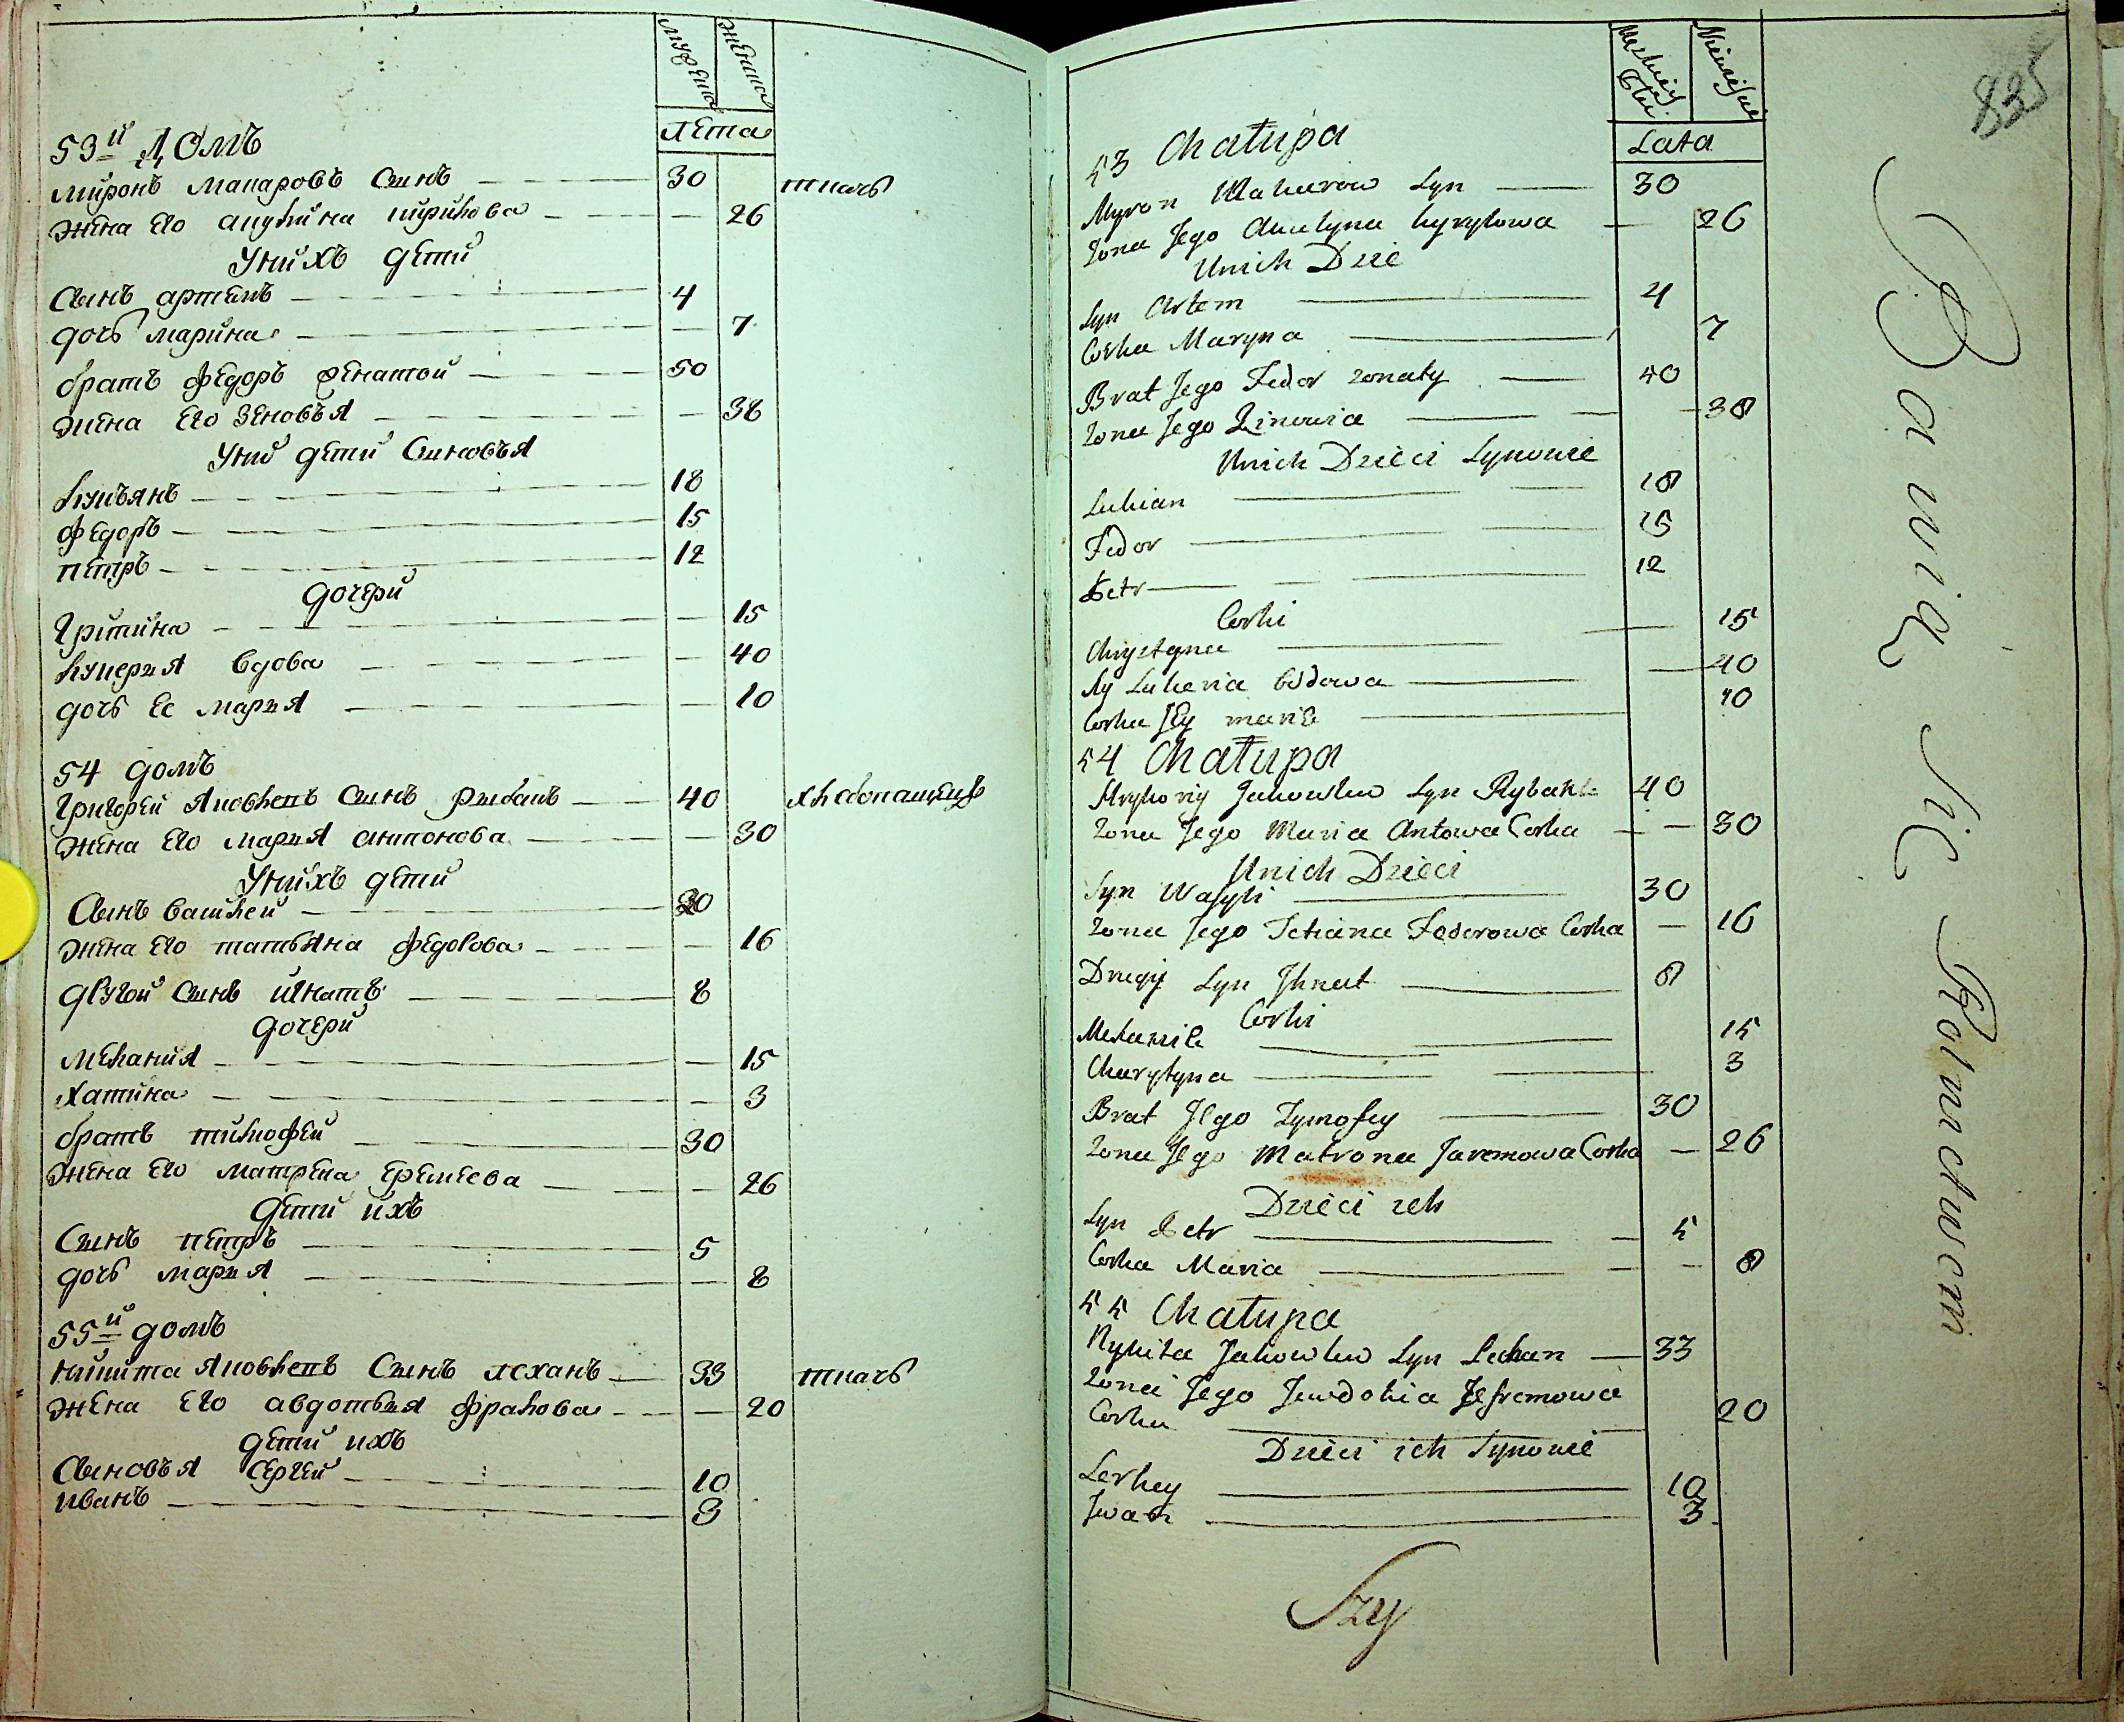 мужеска
женска
лета
53й Домъ
миронъ макаровъ Сынъ 30 ткачъ
жена Его акулина кирилова 26
Уних дети
Сынъ артемъ 4
дочь марина 7
братъ федоръ женатой 50
жена Его Зеновъя 38
Уних дети Сыновъя
лукъянъ 18
федоръ 15
петръ 12
дочери
15
лукеръя вдова 40
дочь Ее маръя 10
54 домъ
Григорей Яковлевъ Сынъ рыбакъ 40 хлебопашецъ
жена Его маръя антонова 30
Унихъ дети
Сынъ василей 30
жена Его татьяна федорова 16
другой Сынъ игнатъ 8
дочери
мелания 15
3
братъ тимофей 30
жена Его матрена Еремеева 26
дети ихъ
Сынъ петръ 5
дочь маръя 8
55й домъ
никита Яковлевъ Сынъ лєханъ 33 ткачъ
жена Его авдотья 20
дети ихъ
Сыновъя Сергей 10
иванъ 3
835
Lata
53 Chałupa
Myron Makarow Syn 30
Zona Jego Akulyna kyrylowa 26
Unich Dzie
Syn Artem 4
Corka Maryna 7
Brat Jego Fedor zonaty 40
Zona Jego Zinowia 38
Unich Dzieci Synowie
Lukian 18
Fedor 15
Petr 12
Corki
Chrystyna 15
Lukeria Wdowa 40
Corka Jey maria 10
54 Chałupa
Hryhoriy Jakowlew Syn Rybak 40
Zona Jego Maria Antowa Corka 30
Unich Dzieci
Syn Wasyli 30
Zona Jego Tetiana Federowa Corka 16
Drugij Syn Ihnat 8
Corki
Melania 15
3
Brat Jego Tymofey 30
Zona Jego Matrona Jaremowa Corka 26
Dzieci ich
Syn Petr 5
Corka Maria 8
55 Chałupa
Nykita Jakowlew Syn Lechan 33
Zona Jego Jewdokia Jefremowa
Corka 20
Dzieci ich Synowie
Serhey 10
Iwan 3